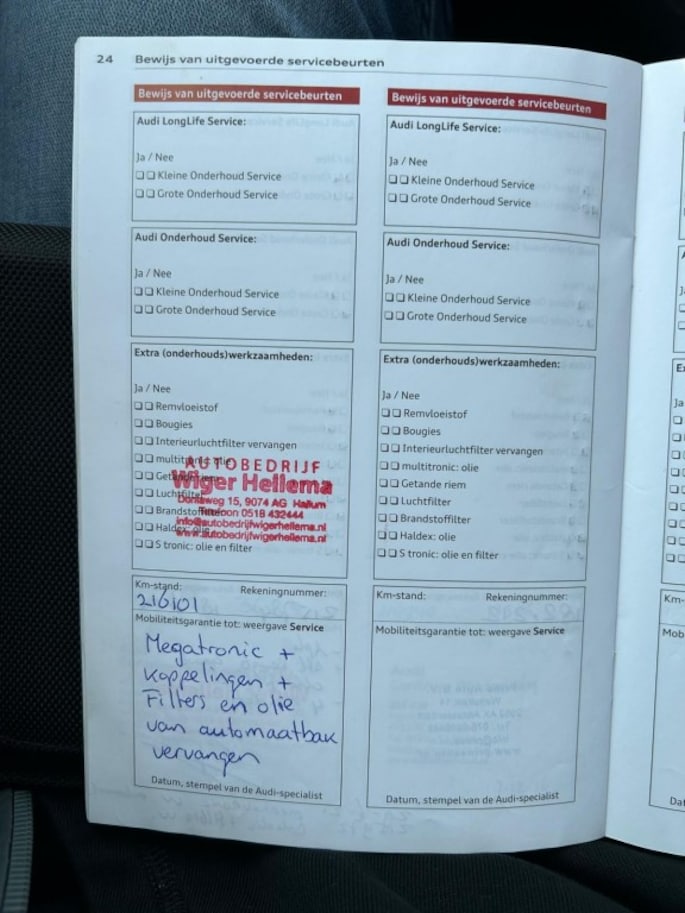 24 Bewijs van uitgevoerde servicebeurten
Bewijs van uitgevoerde servicebeurten
Audi LongLife Service:
Ja / Nee
Kleine Onderhoud Service
Grote Onderhoud Service
Audi Onderhoud Service:
Ja / Nee
Kleine Onderhoud Service
Grote Onderhoud Service
Extra (onderhouds)werkzaamheden:
Ja / Nee
Remvloeistof
Bougies
Interieurluchtfilter vervangen
multitronic: olie
Getande riem
Luchtfilter
Brandstoffilter
Haldex: olie
S tronic: olie en filter
AUTOBEDRIJF
Wiger Hellema
Doniaweg 15, 9074 AG Hallum
Telefoon 0518 432444
info@autobedrijfwigerhellema.nl
www.autobedrijfwigerhellema.nl
Km-stand: Rekeningnummer:
216101
Mobiliteitsgarantie tot: weergave Service
Megatronic +
Koppelingen +
Filters en olie
van automaatbak
vervangen
Datum, stempel van de Audi-specialist
Bewijs van uitgevoerde servicebeurten
Audi LongLife Service:
Ja / Nee
Kleine Onderhoud Service
Grote Onderhoud Service
Audi Onderhoud Service:
Ja / Nee
Kleine Onderhoud Service
Grote Onderhoud Service
Extra (onderhouds)werkzaamheden:
Ja / Nee
Remvloeistof
Bougies
Interieurluchtfilter vervangen
multitronic: olie
Getande riem
Luchtfilter
Brandstoffilter
Haldex: olie
S tronic: olie en filter
Km-stand: Rekeningnummer:
Mobiliteitsgarantie tot: weergave Service
Datum, stempel van de Audi-specialist